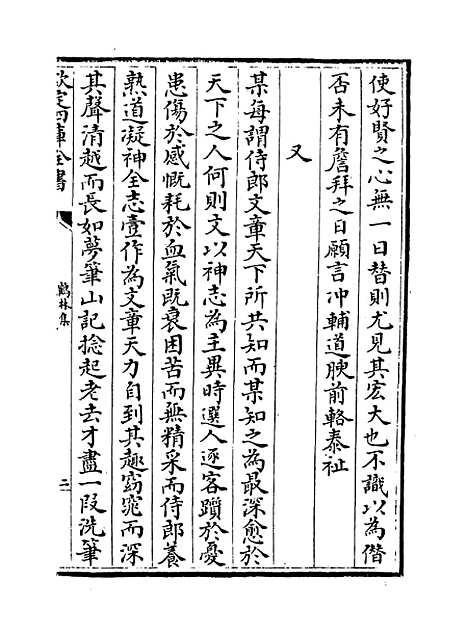 使好賢之心無一日替則尤見其宏大也不識以為僭
否未有詹拜之日願言冲輔道腴前輅泰祉
又
某每謂侍郎文章天下所共知而某知之為最深愈於
天下之人何則文以神志為主異時選人逐客躓於憂
患傷於感慨耗於血氣既衰困苦而無精采而侍郎養
熟道凝神全志壹作為文章天力自到其趣窈窕而深
其聲清越而長如夢筆山記捴起老去才盡一段洗筆
欽定四庫全書
鶴林集
二